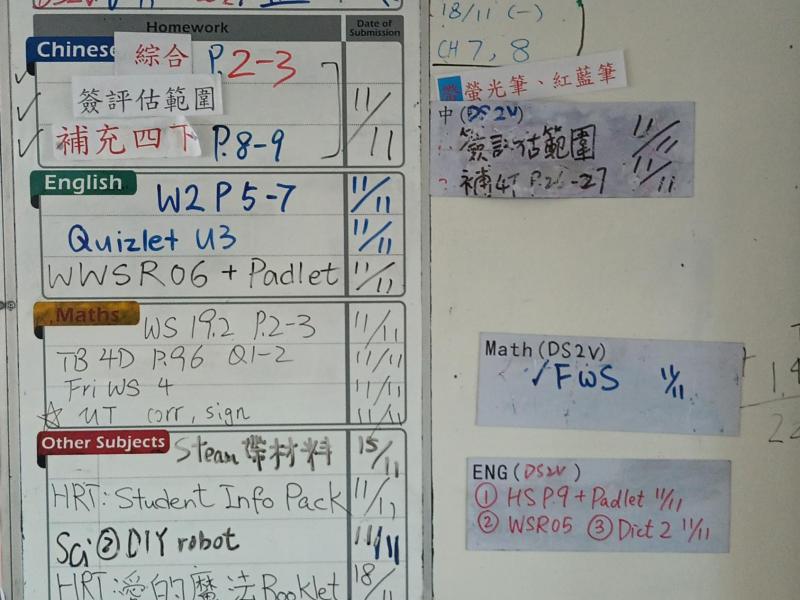 Homework
Date of Submission
Chinese
綜合 P.2-3
簽評估範圍 11/11
補充四下 P.8-9
English
W2 P5-7 11/11
Quizlet U3 11/11
WWSR06 + Padlet 11/11
Maths
WS 19.2 P.2-3 11/11
TB 4D P.96 Q1-2 11/11
Fri WS 4 11/11
☆ UT corr, sign 11/11
Other Subjects
Steam 帶材料 15/11
HRT: Student Info Pack 11/11
Sci ② DIY robot 11/11
HRT: 愛的魔法 Booklet 18/11
18/11 (一)
CH 7, 8
螢光筆、紅藍筆
中 (DS2V)
簽評估範圍 11/11
補4下 P.26-27 11/11
Math (DS2V)
✓FWS 11/11
ENG (DS2V)
① HSP.9 + Padlet 11/11
② WSR05 ③ Dict 2 11/11